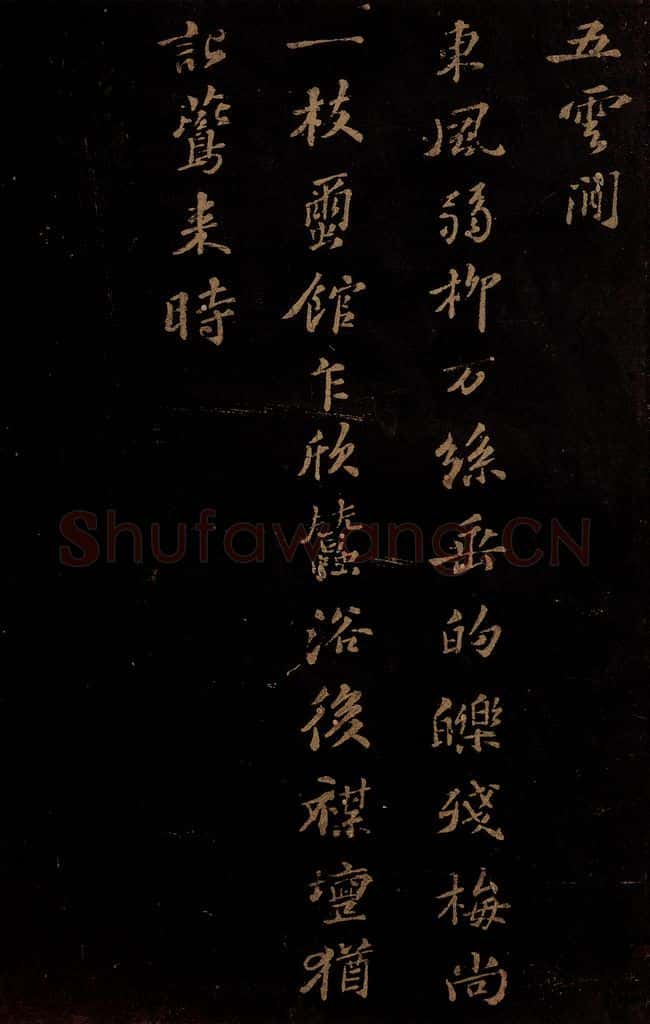 五雲間
東風弱柳万絲垂的皪殘梅尚
一枝蠒館乍欣蠶浴後禖壇猶
記鷰来時
Shufawang.CN